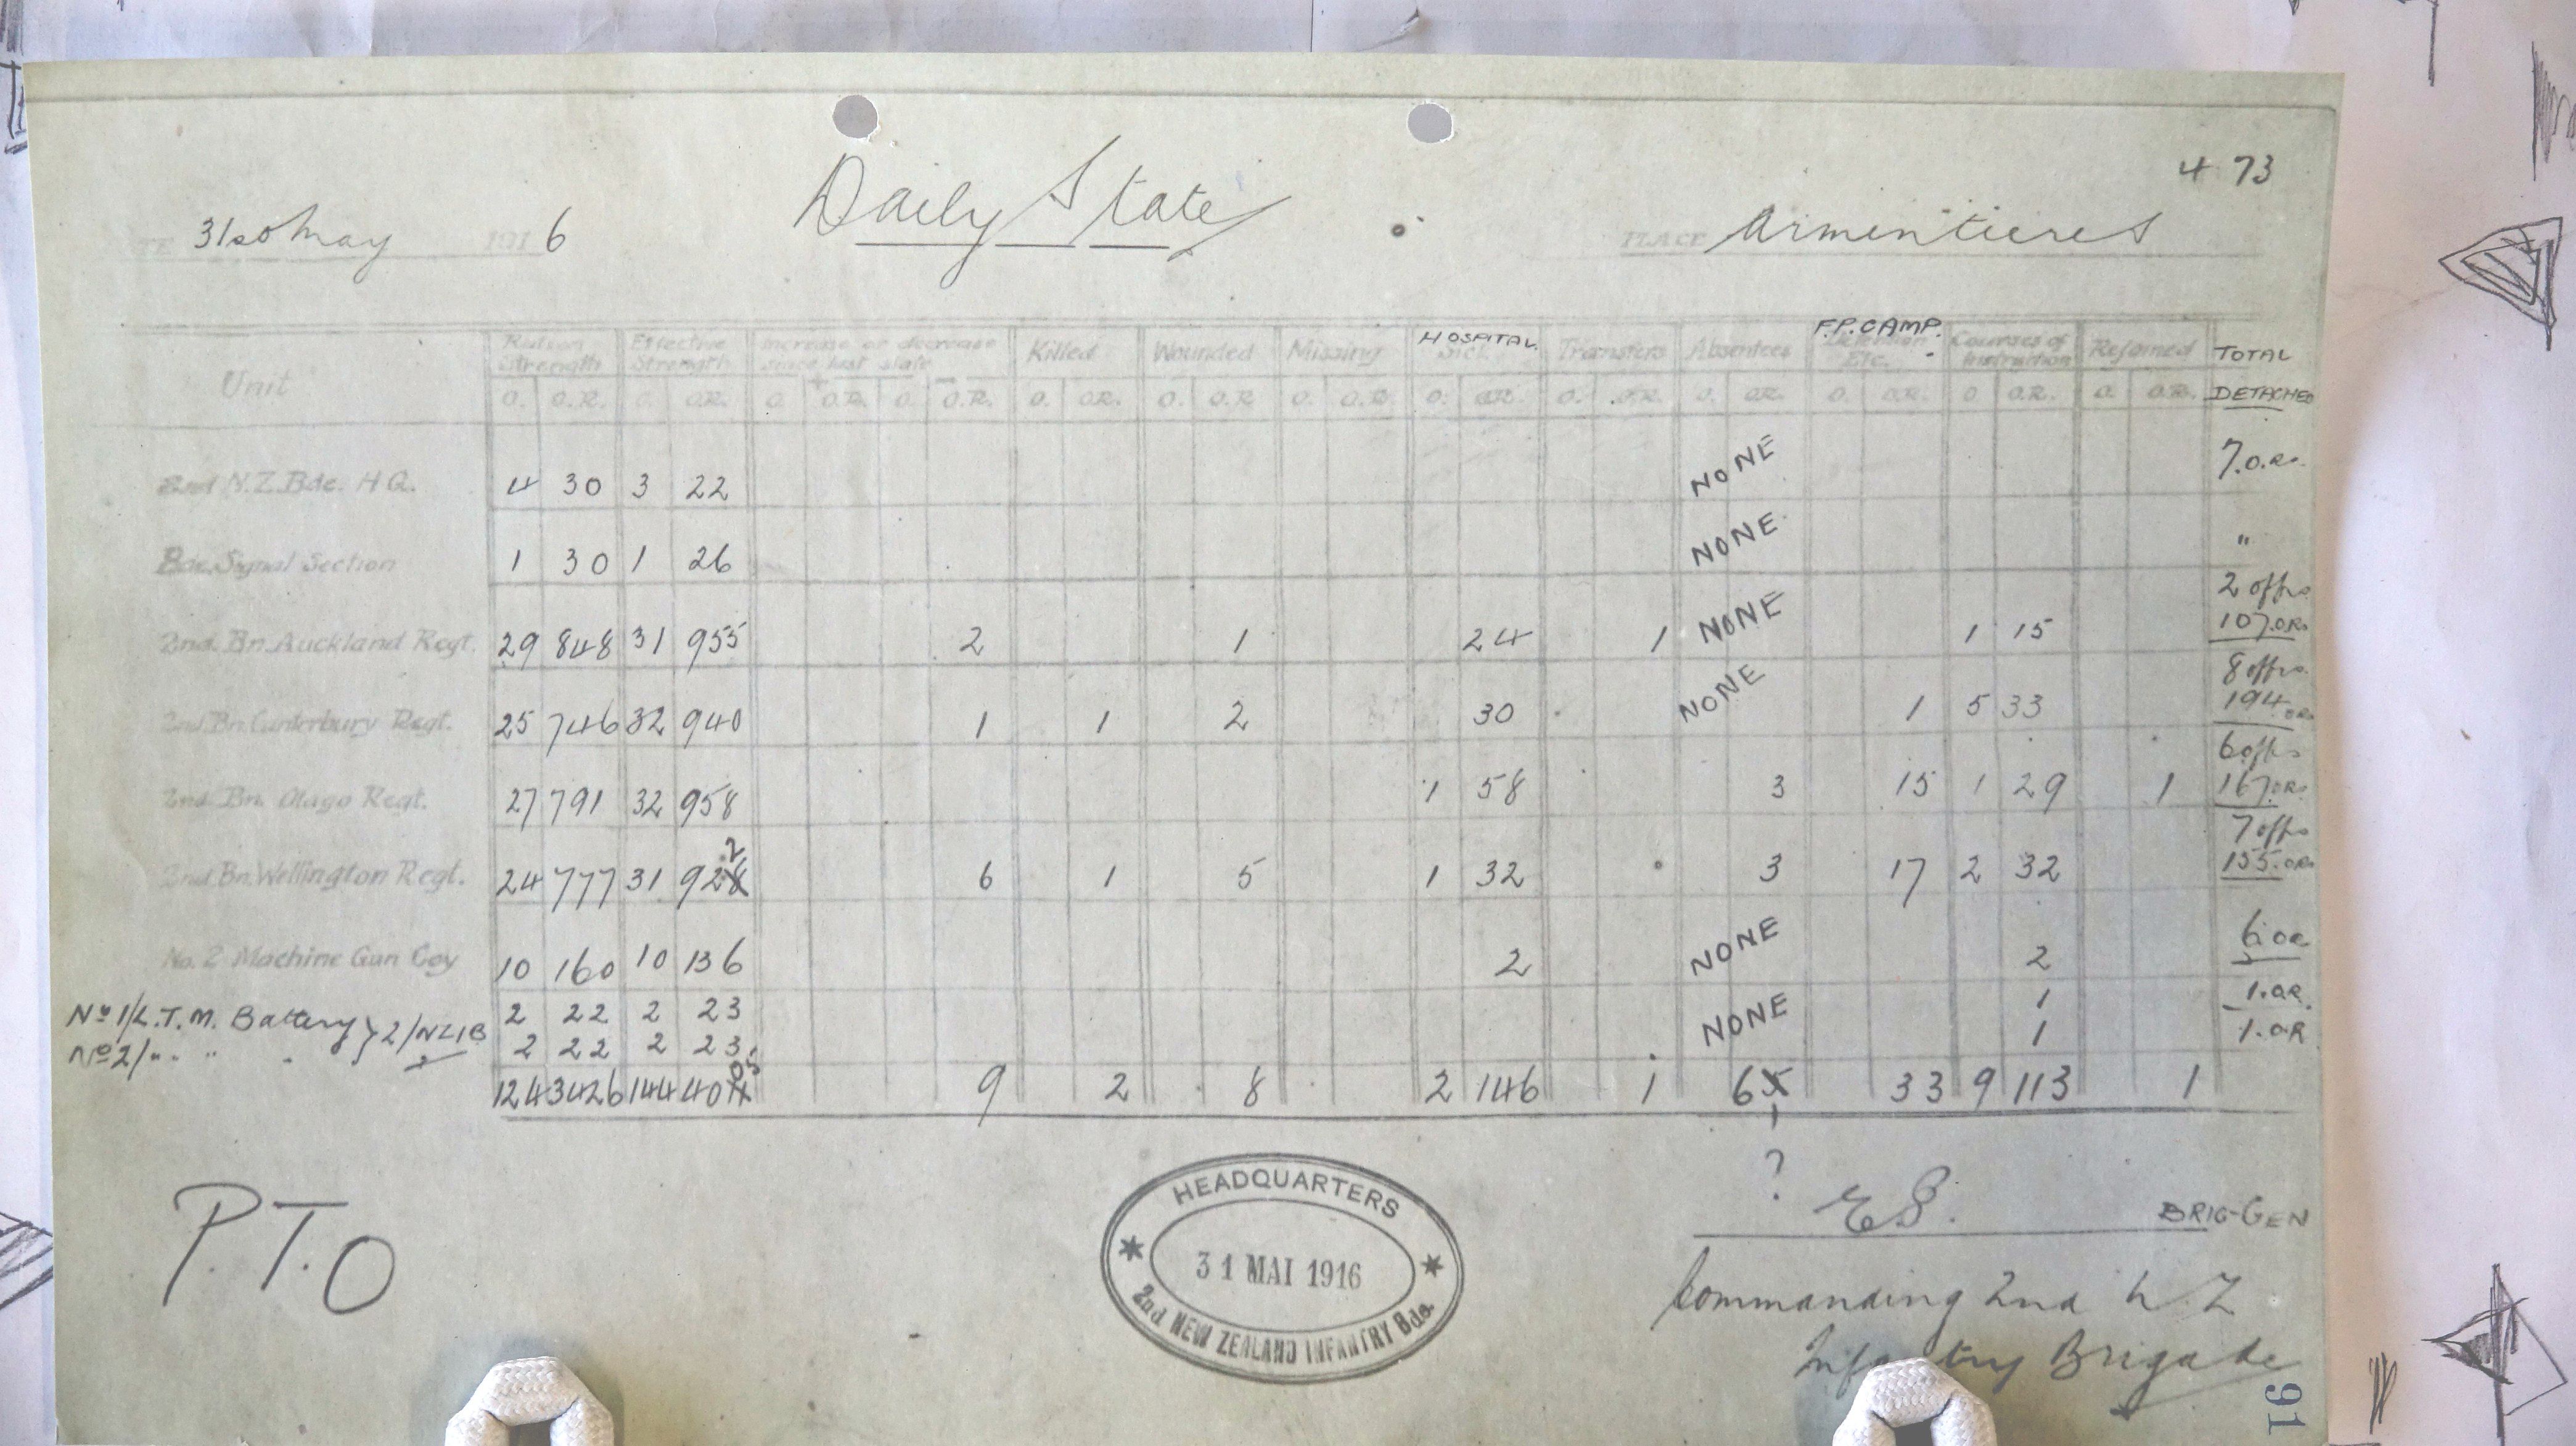 4 73
TE 31st May 1916
Daily State
PLACE Armentieres
Unit Ration Strength Effective Strength Increase or decrease since last state Killed Wounded Missing HOSPITAL. Sick Transfers Absentees F.P. CAMP. Detention Etc. Courses of Instruction Rejoined TOTAL DETACHED
O. O.R. O. O.R. O + O.R. O. - O.R. O. O.R. O. O.R O. O.R O. O.R. O. O.R. O. O.R. O. O.R. O O.R. O. O.R.
2nd N.Z. Bde. H Q. 4 30 3 22 NONE 7.O.Rs.
Bde. Signal Section 1 30 1 26 NONE "
2nd. Bn. Auckland Regt. 29 848 31 955 2 1 24 1 NONE 1 15 2 offrs 107.ORs
2nd Bn. Canterbury Regt. 25 746 32 940 1 1 2 30 NONE 1 5 33 8 offrs. 194 ORs
2nd. Bn. Otago Regt. 27 791 32 958 1 58 3 15 1 29 1 6 offrs 167.ORs
2nd Bn. Wellington Regt. 24 777 31 922 6 1 5 1 32 3 17 2 32 7 offrs 155.ORs
No. 2 Machine Gun Coy 10 160 10 136 2 NONE 2 6.OR
No 1/L.T.M. Battery } 2/NZIB 2 22 2 23 NONE 1 1.OR.
No 2/ " " " 2 22 2 23 1 1.OR
124 3426 144 4005 9 2 8 2 146 1 6 33 9 113 1
?
P.T.O
HEADQUARTERS
31 MAI 1916
2nd NEW ZEALAND INFANTRY Bde.
BRIG-GEN
Commanding 2nd N.Z
Infantry Brigade
91